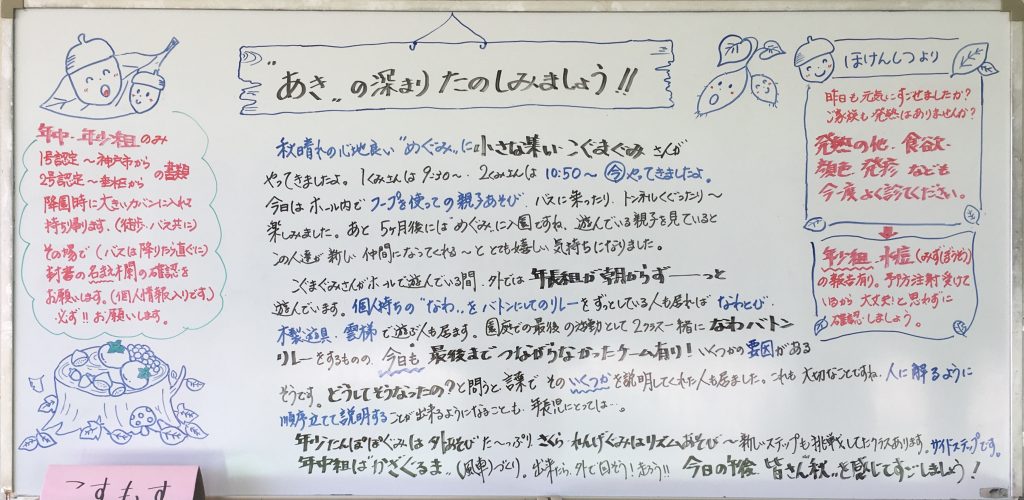 "あき"の深まり たのしみましょう!!
年中・年少組のみ
1号認定～神戸市から
2号認定～垂水区から の書類
降園時に大きいカバンに入れ
持ち帰ります。(徒歩、バス共に)
その場で(バスは降りたら直ぐに)
封書の名まえ欄の確認を
お願いします。(個人情報入りです)
必ず!!お願いします。
秋晴れの心地良い"めぐみ"に小さな集い こぐまぐみ さんが
やってきましたよ。1くみさんは9:30～、2くみさんは10:50～ 今 やってきましたよ。
今日はホール内でフープを使っての親子あそび、バスに乗ったり、トンネルくぐったり～
楽しみました。あと5ヶ月後には"めぐみ"に入園ですね、遊んでいる親子を見ていると
この人達が新しい仲間になってくれる～ととても嬉しい気持ちになりました。
こぐまぐみさんがホールで遊んでいる間、外では年長組が朝からず――っと
遊んでいます。個人持ちの"なわ"をバトンにしてのリレーをずっとしている人も居れば なわとび・
木製遊具・雲梯で遊ぶ人も居ます。園庭での最後の活動として2クラス一緒になわバトン
リレーをするものの、今日も最後までつながらなかったチーム有り!いくつかの要因がある
そうです。どうしてそうなったの?と問うと言葉でそのいくつかを説明してくれた人も居ました。これも大切なことですね、人に解るように
順序立てて説明することが出来るようになることも、年長児にとっては…。
年少たんぽぽぐみは外あそびた～っぷり さくら・れんげぐみはリズムあそび～新しいステップも挑戦してたクラスあります。サイドステップです。
年中組は"かざぐるま"(風車)づくり。出来たら、外で回そう!走ろう!! 今日の午後 皆さん"秋"を感じてすごしましょう!
ほけんしつより
昨日も元気にすごせましたか?
ご家族も発熱はありませんか?
発熱の他、食欲・
顔色、発疹なども
今一度よく診てください。
年少組、水痘(みずぼうそう)
の報告有り。予防注射受けて
いるから大丈夫!と思わずに
確認しましょう。
こすもす